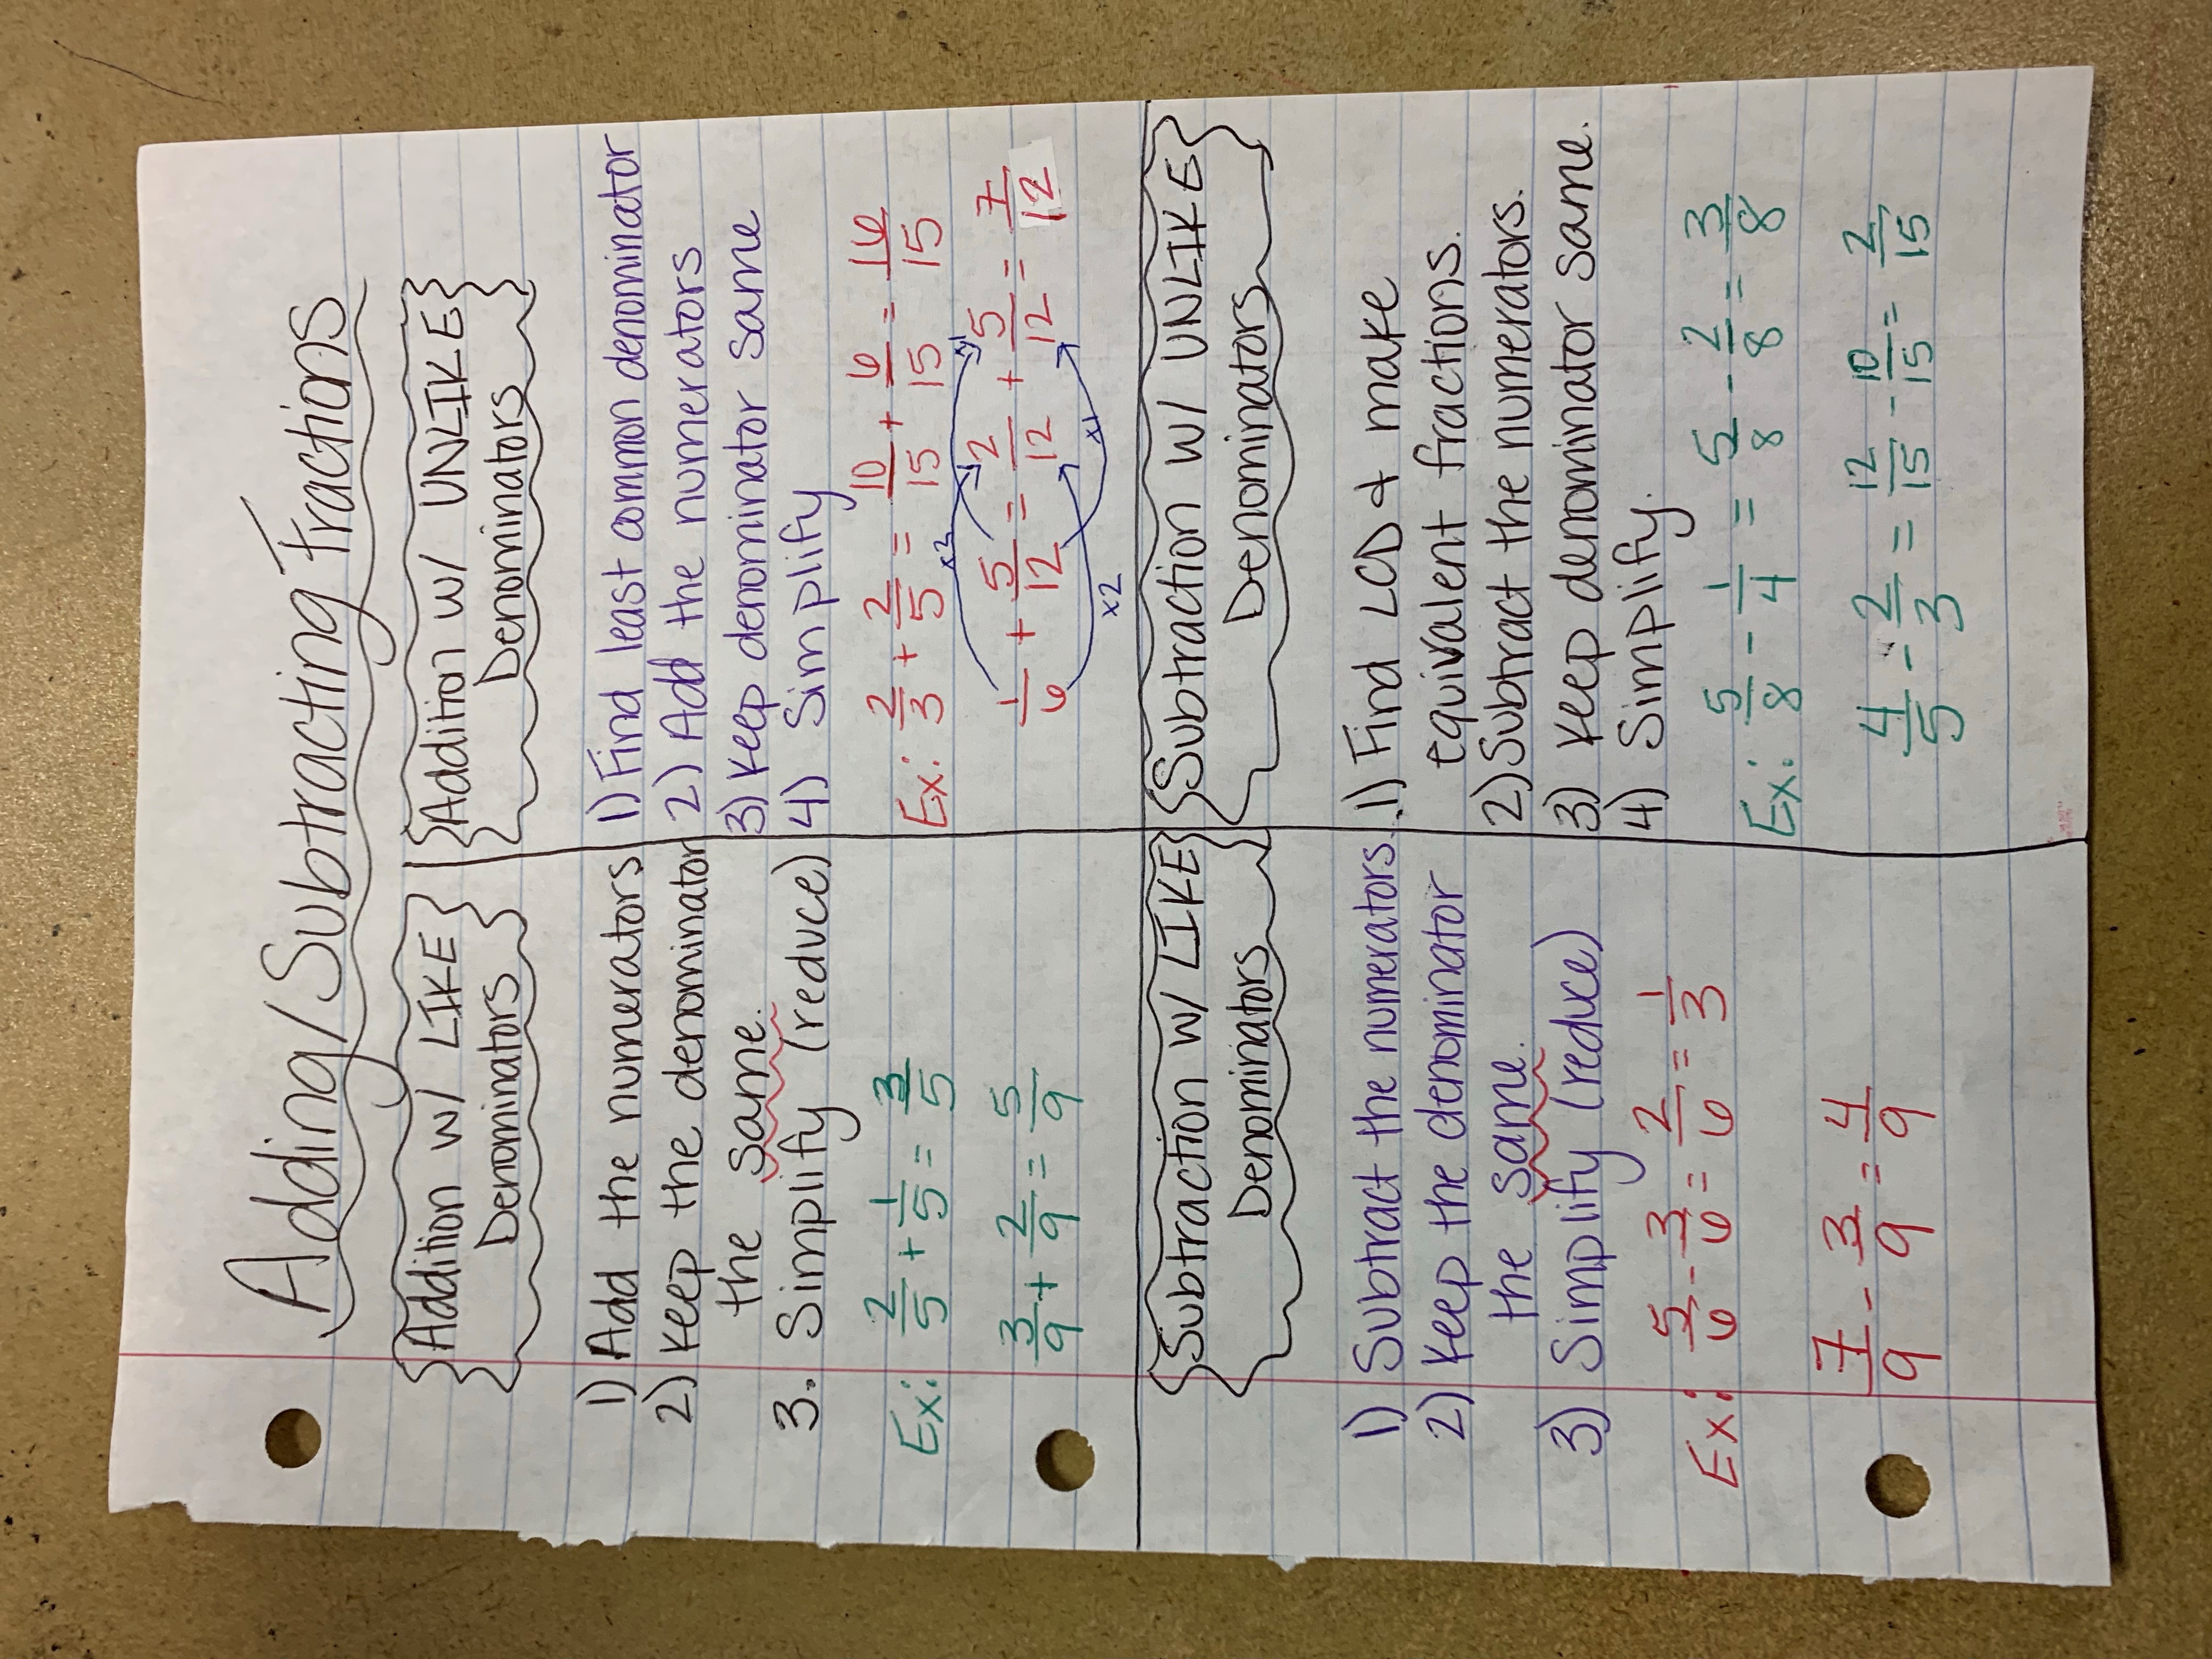 Adding/Subtracting Fractions
Addition w/ LIKE
Denominators
1) Add the numerators
2) Keep the denominator
the same.
3. Simplify (reduce)
Ex: 2/5 + 1/5 = 3/5
3/9 + 2/9 = 5/9
Addition w/ UNLIKE
Denominators
1) Find least common denominator
2) Add the numerators
3) Keep denominator same
4) Simplify
Ex: 2/3 + 2/5 = 10/15 + 6/15 = 16/15
x2 x1
1/6 + 5/12 = 2/12 + 5/12 = 7/12
x2 x1
Subtraction w/ LIKE
Denominators
1) Subtract the numerators.
2) Keep the denominator
the same.
3) Simplify (reduce)
Ex: 5/6 - 3/6 = 2/6 = 1/3
7/9 - 3/9 = 4/9
Subtraction w/ UNLIKE
Denominators
1) Find LCD & make
equivalent fractions.
2) Subtract the numerators.
3) Keep denominator same.
4) Simplify.
Ex: 5/8 - 1/4 = 5/8 - 2/8 = 3/8
4/5 - 2/3 = 12/15 - 10/15 = 2/15